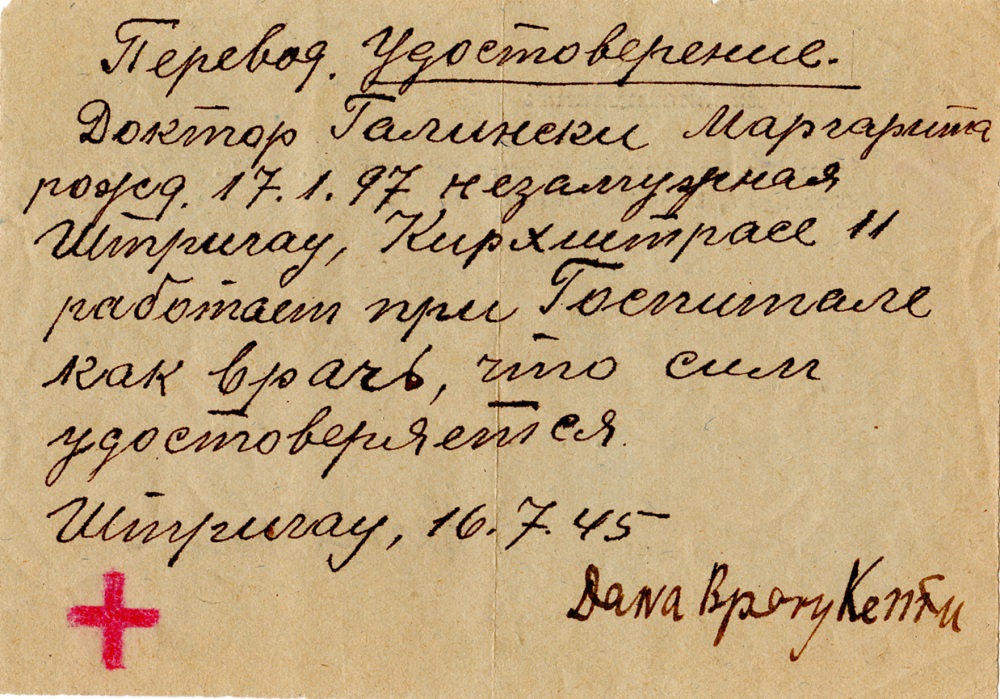 Перевод. Удостоверение.
Доктор Галински Маргарита
рожд. 17.1.97 незамужная
Штригау, Кирхштрасе 11
работает при Госпитале
как врачъ, что сим
удостоверяется
Штригау, 16.7.45
Дана Врачу